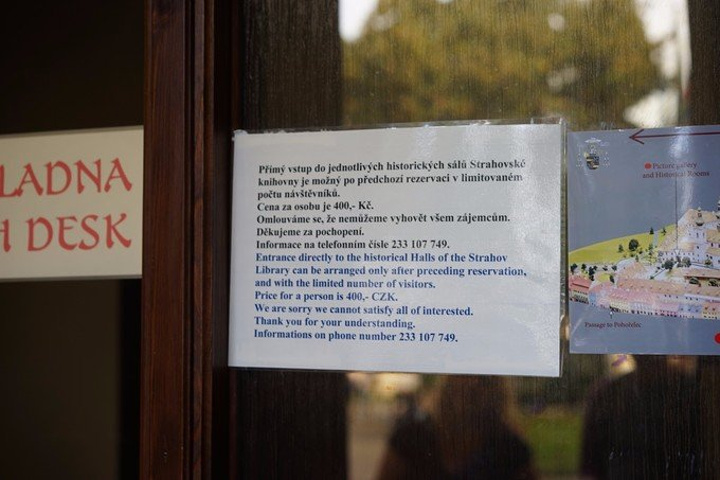 LADNA
H DESK
Přímý vstup do jednotlivých historických sálů Strahovské
knihovny je možný po předchozí rezervaci v limitovaném
počtu návštěvníků.
Cena za osobu je 400,- Kč.
Omlouváme se, že nemůžeme vyhovět všem zájemcům.
Děkujeme za pochopení.
Informace na telefonním čísle 233 107 749.
Entrance directly to the historical Halls of the Strahov
Library can be arranged only after preceding reservation,
and with the limited number of visitors.
Price for a person is 400,- CZK.
We are sorry we cannot satisfy all of interested.
Thank you for your understanding.
Informations on phone number 233 107 749.
Picture gallery
and Historical Rooms
Passage to Pohořelec